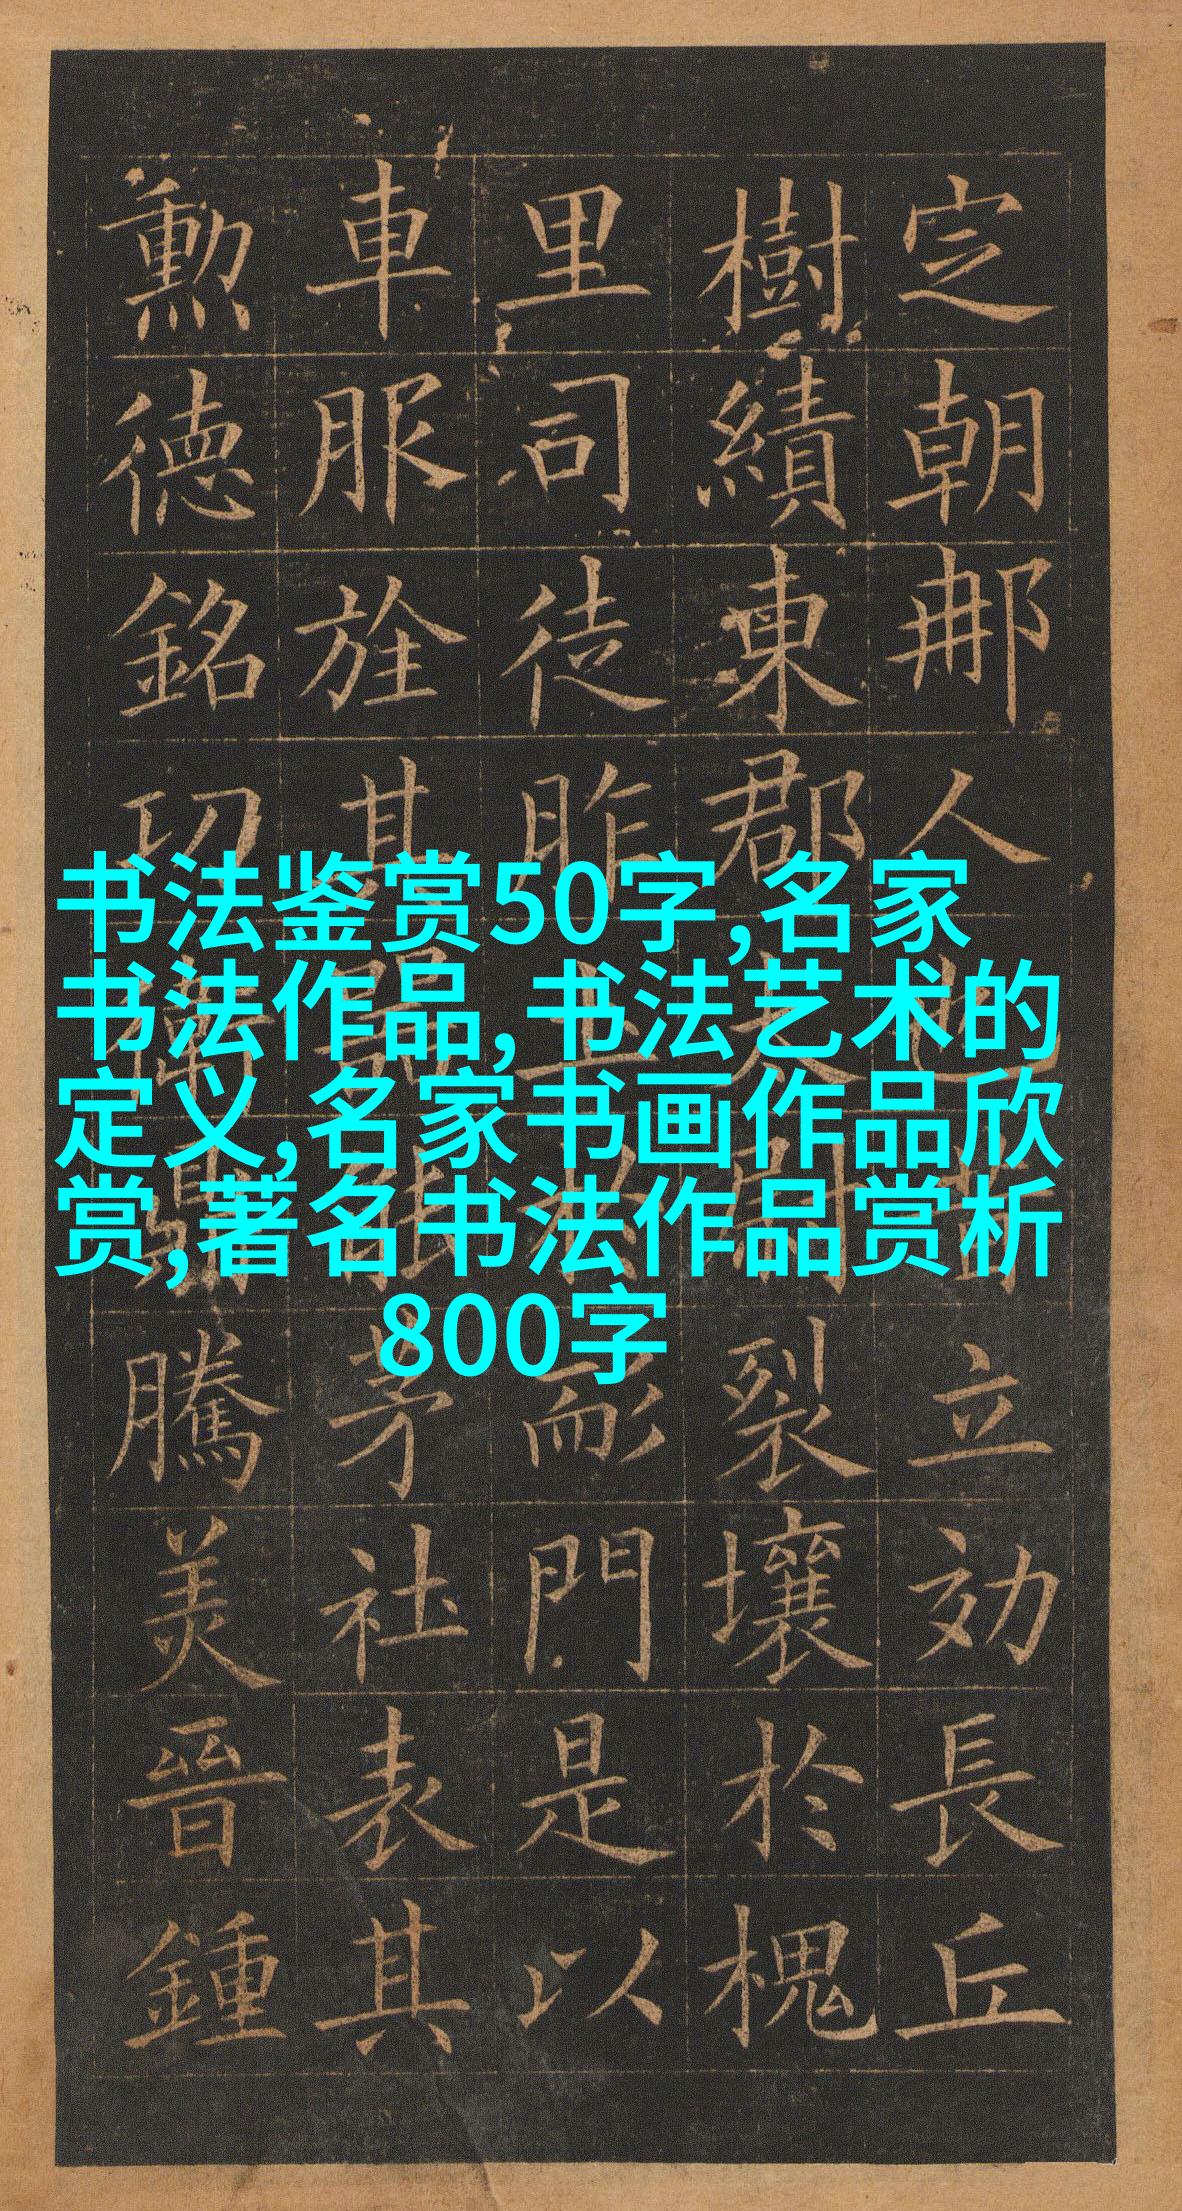 定朝那人也昔立効長丘
樹績東郡太尉裂壤於槐
里司徒胙土於耏門是以
車服旌其器能茅社表其
勳德銘功衛鼎騰美晉鍾
书法鉴赏50字,名家
书法作品,书法艺术的
定义,名家书画作品欣
赏,著名书法作品赏析
800字